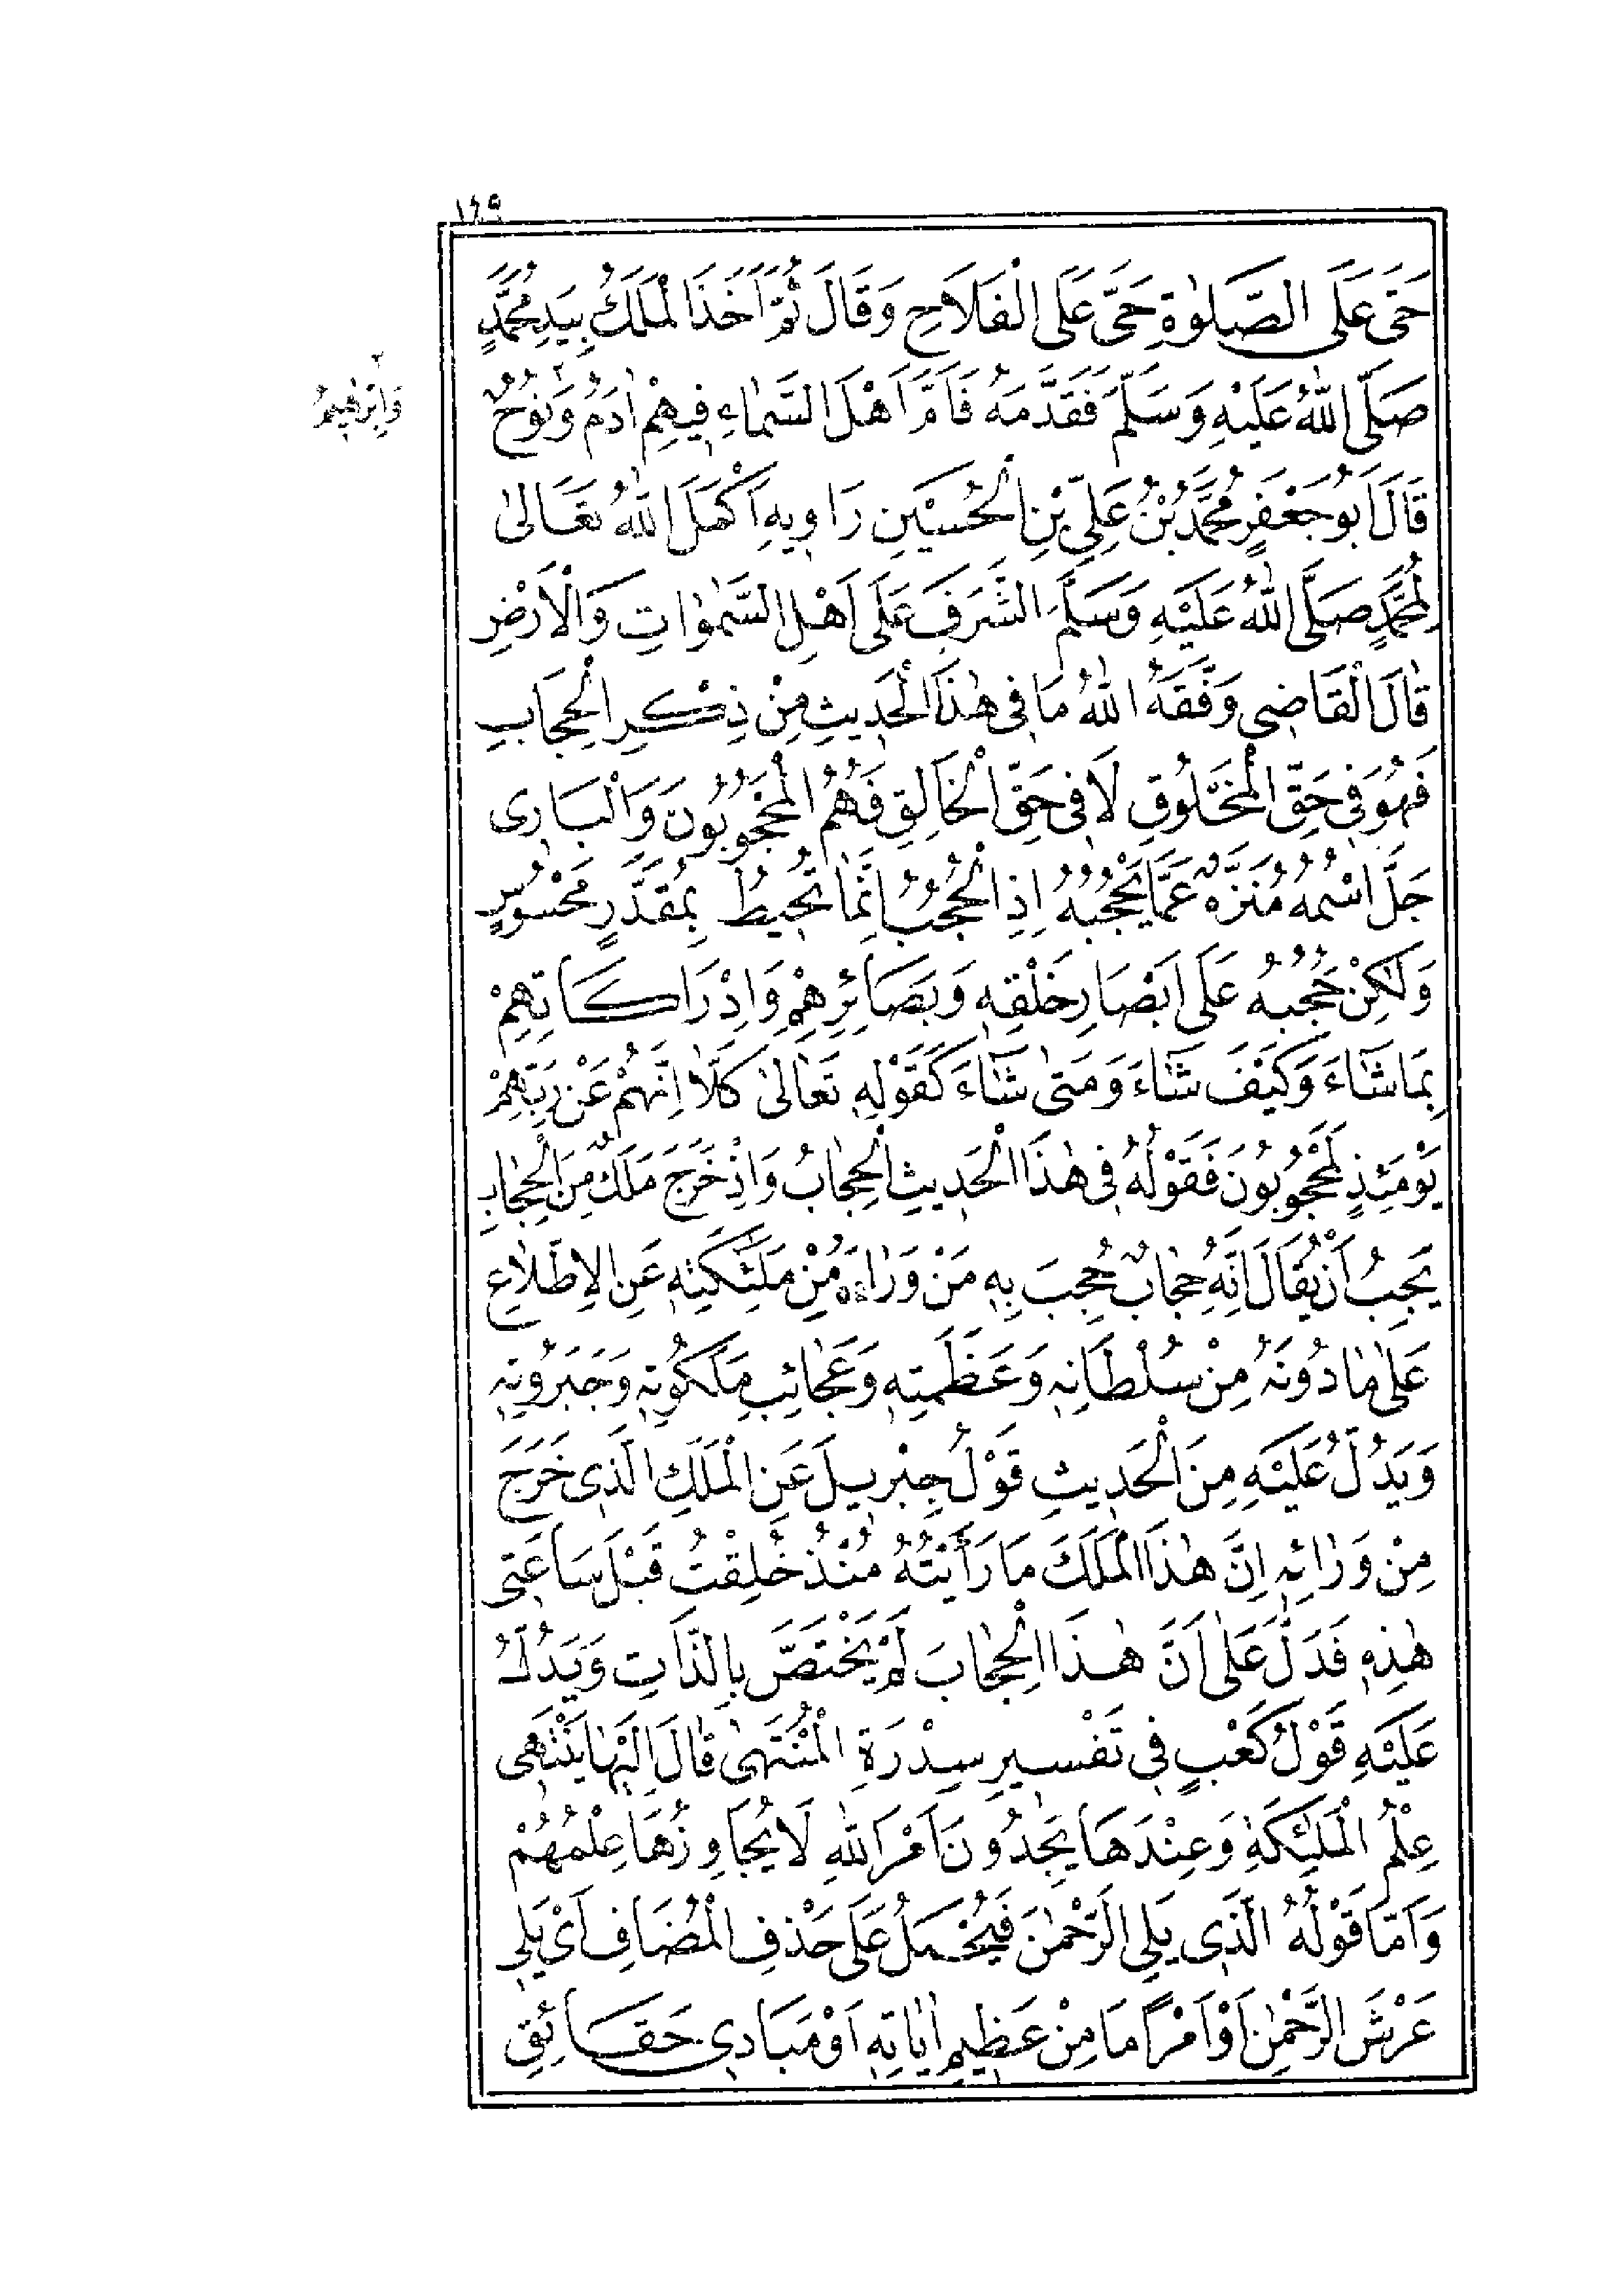 ١٤٩
حَيَّ عَلَى الصَّلٰوةِ حَيَّ عَلَى الْفَلَاحِ وَقَالَ ثُمَّ اَخَذَ الْمَلَكُ بِيَدِ مُحَمَّدٍ
صَلَّى اللّٰهُ عَلَيْهِ وَسَلَّمَ فَقَدَّمَهُ فَاَمَّ اَهْلَ السَّمَاءِ فِيهِمْ اٰدَمُ وَنُوحٌ٢
٢ وَاِبْرٰهِيمُ
قَالَ اَبُو جَعْفَرٍ مُحَمَّدُ بْنُ عَلِيِّ بْنِ الْحُسَيْنِ رَاوِيهِ اَكْمَلَ اللّٰهُ تَعَالٰى
لِمُحَمَّدٍ صَلَّى اللّٰهُ عَلَيْهِ وَسَلَّمَ الشَّرَفَ عَلَى اَهْلِ السَّمٰوَاتِ وَالْاَرْضِ
قَالَ الْقَاضِي وَفَّقَهُ اللّٰهُ مَا فِي هٰذَا الْحَدِيثِ مِنْ ذِكْرِ الْحِجَابِ
فَهُوَ فِي حَقِّ الْمَخْلُوقِ لَا فِي حَقِّ الْخَالِقِ فَهُمُ الْمَحْجُوبُونَ وَالْبَارِى
جَلَّ اسْمُهُ مُنَزَّهٌ عَمَّا يَحْجُبُهُ اِذِ الْحُجُبُ اِنَّمَا تُحِيطُ بِمُقَدَّرٍ مَحْسُوسٍ
وَلٰكِنْ حُجُبُهُ عَلَى اَبْصَارِ خَلْقِهِ وَبَصَائِرِهِمْ وَاِدْرَاكَاتِهِمْ
بِمَا شَاءَ وَكَيْفَ شَاءَ وَمَتٰى شَاءَ كَقَوْلِهِ تَعَالٰى كَلَّا اِنَّهُمْ عَنْ رَبِّهِمْ
يَوْمَئِذٍ لَمَحْجُوبُونَ فَقَوْلُهُ فِي هٰذَا الْحَدِيثِ الْحِجَابُ وَاِذْ خَرَجَ مَلَكٌ مِنَ الْحِجَابِ
يَجِبُ اَنْ يُقَالَ اِنَّهُ حِجَابٌ حُجِبَ بِهِ مَنْ وَرَاءَهُ مِنْ مَلٰئِكَتِهِ عَنِ الْاِطِّلَاعِ
عَلٰى مَا دُونَهُ مِنْ سُلْطَانِهِ وَعَظَمَتِهِ وَعَجَائِبِ مَلَكُوتِهِ وَجَبَرُوتِهِ
وَيَدُلُّ عَلَيْهِ مِنَ الْحَدِيثِ قَوْلُ جِبْرِيلَ عَنِ الْمَلَكِ الَّذِي خَرَجَ
مِنْ وَرَائِهِ اِنَّ هٰذَا الْمَلَكَ مَا رَاَيْتُهُ مُنْذُ خُلِقْتُ قَبْلَ سَاعَتِي
هٰذِهِ فَدَلَّ عَلٰى اَنَّ هٰذَا الْحِجَابَ لَمْ يَخْتَصَّ بِالذَّاتِ وَيَدُلُّ
عَلَيْهِ قَوْلُ كَعْبٍ فِي تَفْسِيرِ سِدْرَةِ الْمُنْتَهٰى قَالَ اِلَيْهَا يَنْتَهِى
عِلْمُ الْمَلٰئِكَةِ وَعِنْدَهَا يَجِدُونَ اَمْرَ اللّٰهِ لَا يُجَاوِزُهَا عِلْمُهُمْ
وَاَمَّا قَوْلُهُ الَّذِي يَلِي الرَّحْمٰنَ فَيُحْمَلُ عَلَى حَذْفِ الْمُضَافِ اَيْ يَلِي
عَرْشَ الرَّحْمٰنِ اَوْ اَمْرًا مَا مِنْ عَظِيمِ اٰيَاتِهِ اَوْ مَبَادِي حَقَائِقِ